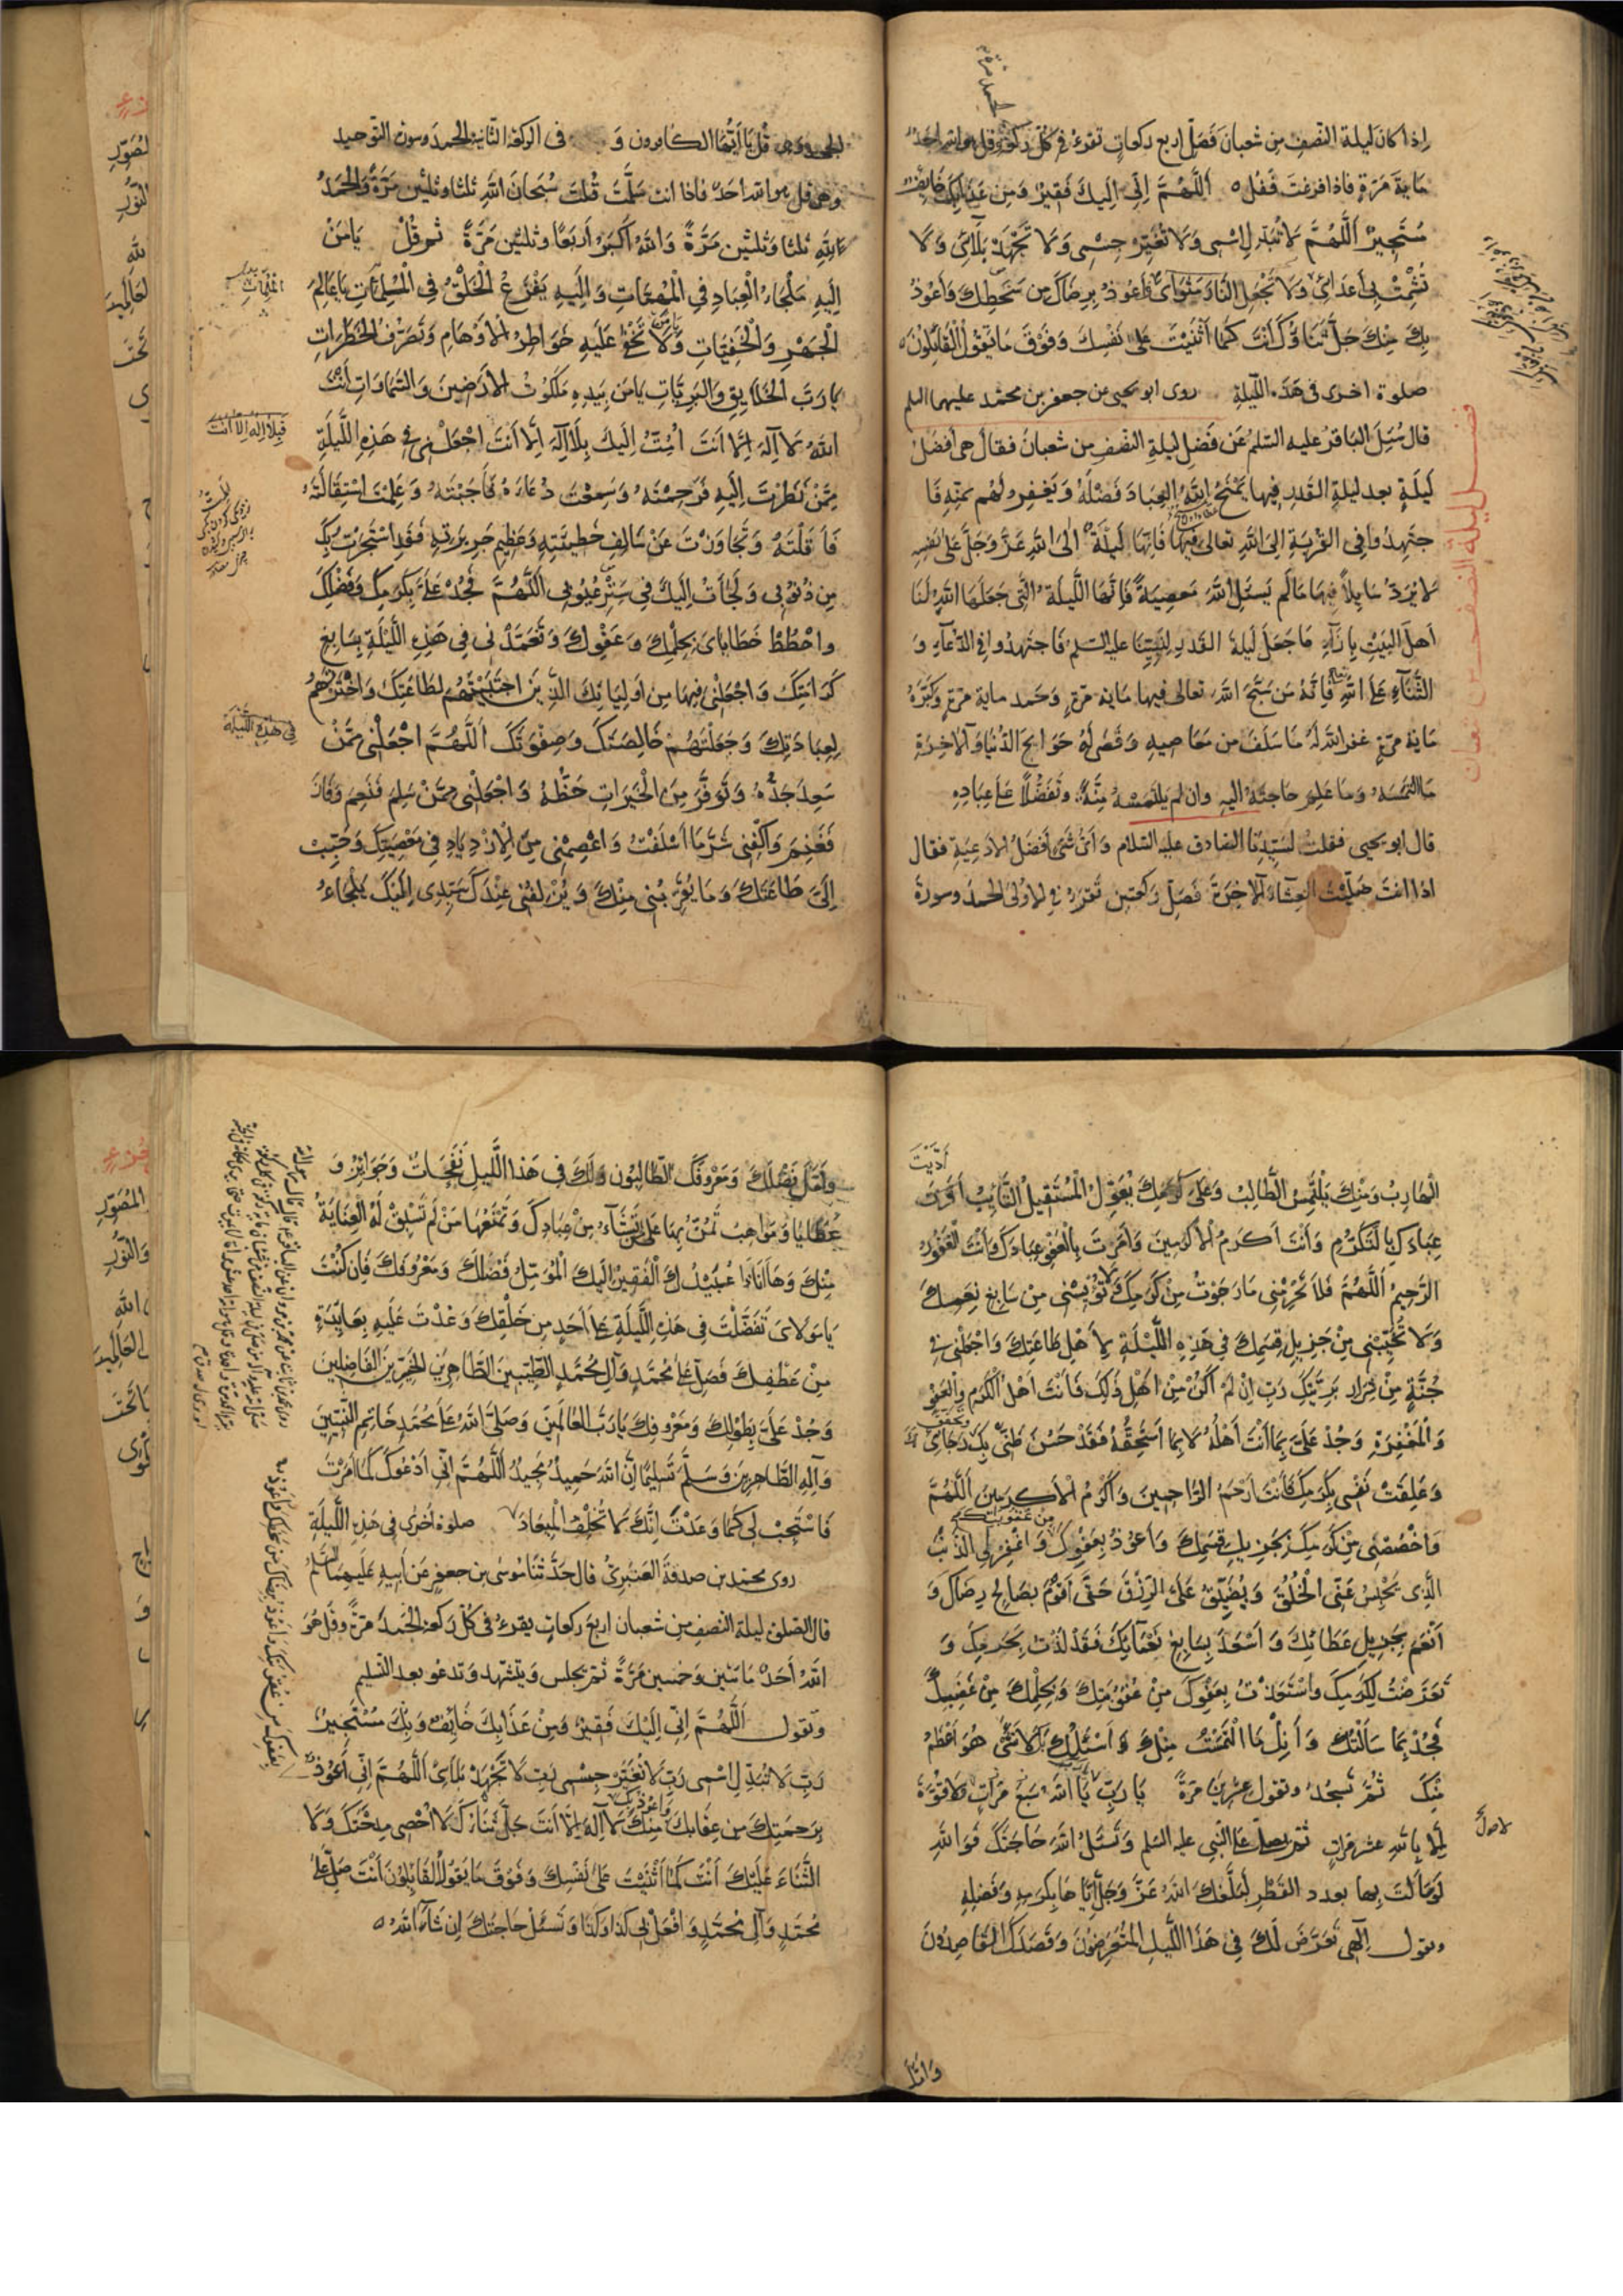 إذا كان ليلة النصف من شعبان فصلّ اربع ركعاتٍ تقرء في كلّ ركعة قل هو الله احد
ماية مَرّةٍ فاذا فرغت فقل ه اَللَّهُمَّ اِنّي اِلَيكَ فَقيرٌ وَمِن عَذابِكَ خائِفٌ
مُستَجيرٌ اَللَّهُمَّ لا تُبَدِّل اِسْمي وَلا تُغَيِّر جِسْمي وَلا تَجْهَدْ بَلائي وَلا
تُشْمِتْ بي أعدائي وَلا تَجْعَلِ النّارَ مَثْوايَ وَأعوذُ بِرِضاكَ من سَخَطِكَ وَأعوذُ
بِكَ مِنْكَ جَلَّ ثَناؤُكَ أنتَ كَما أثْنَيْتَ عَلى نَفْسِكَ وَفَوْقَ ما يَقولُ الْقائِلُونَ ه
صلوة اخرى في هذه اللّيلةِ روى ابو يحيى عن جعفر بن محمّد عليهما السلم
قال سُئِلَ الباقرُ عليه السّلم عَن فَضلِ ليلةِ النصفِ من شعبانَ فقالَ هي أفضلُ
لَيلَةٍ بعد ليلةِ القدرِ فيها يَمْنَحُ اللهُ العِبادَ فَضْلَهُ وَيَغفِرُ لَهُم بمَنِّهِ فَا
جتَهِدُوا في القُربَةِ اِلى اللهِ تعالى فيها فَاِنّها لَيلَةٌ الى اللهُ عَزَّ وَجَلَّ على نفسِهِ
لا يَرُدّ سايِلاً فيها ما لَم يَسئلِ اللهَ مَعصِيَةً فَاِنّها اللّيلَةُ الّتي جَعَلَها اللهُ لَنا
أهلَ البَيتِ بِازاءِ ما جَعَلَ لَيلةَ القَدرِ لِنَبيِّنا عليه السلم فَاجتَهِدُوا في الدُّعاءِ وَ
الثَّناءِ عَلَى اللهِ تعالى فَاِنّه مَن سَبَّحَ اللهَ تعالى فيها ماية مرّةٍ وَحَمِدَ ماية مرّةٍ وَكَبَّرَهُ
ماية مرّةٍ غفر الله له ما سَلَفَ من مَعاصيهِ وَقضى له حَوايجَ الدُّنيا والآخِرَةِ
ما التَمَسَه وَما عَلِمَ حاجتَهُ اليه وان لم يَلتَمِسْهُ مِنّةً وَتَفَضُّلاً عَلى عِبادِهِ
قال ابو يحيى فقلت لسَيّدِنا الصادق عليه السّلام وَأيّ شَيءٍ أفضَلُ الأدعِيَةِ فقال
اذا انتَ صَلّيتَ العِشاءَ الآخِرَةَ فَصَلِّ رَكعتين تَقرَءُ في الأولى الحمدَ وسورةَ
فضل ليلة النصف من شعبان
الجحد وهي قُلْ يا أيُّها الكافرون وَ في الركعة الثانيه الحمدَ وسورة التوحيد
وهي قل هو الله احد فاذا انت سَلَّمتَ قُلتَ سُبحانَ اللهِ ثلثا وثلثين مَرّةً وَالحَمدُ
لِلّهِ ثلثا وَثلثين مَرَّةً وَاللهُ أكبَرُ أربَعًا وثلثين مَرّةً ثم قُلْ يا مَنْ
اِلَيهِ مَلْجَاءُ الْعِبادِ فِي الْمُهِمّاتِ وَاِلَيهِ يَفْزَعُ الْخَلْقُ فِي الْمُلِمّاتِ يا عالِمَ
الْجَهْرِ وَالْخَفِيّاتِ وَلا تَخْفى عَلَيهِ خَواطِرُ الأوهامِ وَتَصَرُّفُ الخَطَراتِ
يا رَبَّ الخَلايِقِ وَالبَرِيّاتِ يا مَن بِيَدِهِ مَلَكُوتُ الأرَضينَ وَالسَّمَاوَاتِ أنْتَ
اللهُ لا اِلهَ اِلاّ أنتَ أمُتُّ اِلَيكَ بِلا اِلهَ اِلاّ أنتَ اجْعَلْني في هَذِهِ اللَّيلَةِ
مِمَّنْ نَظَرْتَ اِلَيهِ فَرَحِمْتَهُ وَسَمِعْتَ دُعاءَهُ فَأجَبْتَهُ وَعَلِمْتَ اسْتِقالَتَهُ
فَأقَلْتَهُ وَتَجاوَزْتَ عَنْ سالِفِ خَطيئَتِهِ وَعَظيمِ جَريرَتِهِ فَقَدِ اسْتَجَرْتُ بِكَ
مِن ذُنُوبي وَلَجَأتُ اِلَيكَ في سَتْرِ عُيُوبي اَللَّهُمَّ فَجُدْ عَلَيَّ بِكَرَمِكَ وَفَضْلِكَ
واحْطُطْ خَطايايَ بِحِلْمِكَ وَعَفْوِكَ وَتَغَمَّدْني في هَذِهِ اللَّيلَةِ بِسابِغِ
كَرامَتِكَ وَاجْعَلْني فيها مِن أولِيائِكَ الَّذينَ اجتَبَيْتَهُم لِطاعَتِكَ وَاخْتَرتَهُمْ
لِعِبادَتِكَ وَجَعَلْتَهُمْ خالِصَتَكَ وَصِفْوَتَكَ اَللَّهُمَّ اجْعَلْني مِمَّنْ
سَعِدَ جَدُّهُ وَتَوَفَّرَ مِنَ الْخَيراتِ حَظُّهُ وَاجْعَلْني مِمَّنْ سَلِمَ فَنَعِمَ وَفازَ
فَغَنِمَ وَاكْفِني شَرَّ ما أسْلَفْتُ وَاعْصِمْني مِنَ الاِزْدِيادِ في مَعْصِيَتِكَ وَحَبِّبْ
اِلَيَّ طاعَتَكَ وَما يُقَرِّبُني مِنْكَ وَيُزْلِفُني عِنْدَكَ سَيِّدي اِلَيكَ يَلْجَاءُ
في هذه الليلة
الْهارِبُ وَمِنْكَ يَلْتَمِسُ الطّالِبُ وَعَلى كَرَمِكَ يُعَوِّلُ الْمُسْتَقيلُ التّائِبُ أدَّبْتَ
عِبادَكَ بِالتَّكَرُّمِ وَأنتَ أكرَمُ الأكرَمينَ وَأمَرتَ بِالْعَفْوِ عِبادَكَ وَأنْتَ الْغَفُورُ
الرَّحيمُ اَللَّهُمَّ فَلا تَحْرِمْني ما رَجَوْتُ مِنْ كَرَمِكَ وَلا تُؤْيِسْني مِنْ سابِغِ نِعَمِكَ
وَلا تُخَيِّبْني مِنْ جَزيلِ قِسَمِكَ في هَذِهِ اللَّيْلَةِ لِأَهْلِ طاعَتِكَ وَاجْعَلْني في
جُنَّةٍ مِنْ شِرارِ بَرِيَّتِكَ رَبِّ اِنْ لَمْ أكُنْ مِنْ أهْلِ ذَلِكَ فَأنتَ أهْلُ الْكَرَمِ وَالْعَفْوِ
وَالْمَغْفِرَةِ وَجُدْ عَلَيَّ بِما أنْتَ أهْلُهُ لا بِما أسْتَحِقُّهُ فَقَدْ حَسُنَ ظَنّي بِكَ وَتَحَقَّقَ رَجائي لَكَ
وَعَلِقَتْ نَفْسي بِكَرَمِكَ فَأنْتَ أرْحَمُ الرّاحِمينَ وَأكْرَمُ الأكرَمينَ اَللَّهُمَّ
وَاخْصُصْني مِنْ كَرَمِكَ بِجَزيلِ قِسَمِكَ وَأعُوذُ بِعَفْوِكَ مِن عُقُوبَتِكَ وَاغْفِرْ لِيَ الذَّنْبَ
الَّذي يَحْبِسُ عَنّي الْخُلُقَ وَيُضَيِّقُ عَلَيَّ الرِّزْقَ حَتّى أقُومَ بِصالِحِ رِضاكَ وَ
أنْعَمَ بِجَزيلِ عَطائِكَ وَأسْعَدَ بِسابِغِ نَعْمائِكَ فَقَدْ لُذْتُ بِحَرَمِكَ وَ
تَعَرَّضْتُ لِكَرَمِكَ واسْتَعَذْتُ بِعَفْوِكَ مِنْ عُقُوبَتِكَ وَبِحِلْمِكَ مِنْ غَضَبِكَ
فَجُدْ بِما سَألْتُكَ وَأنِلْ ما الْتَمَسْتُ مِنْكَ وَأسْئَلُكَ بِكَ لا بِشَيءٍ هُوَ أعْظَمُ
مِنْكَ ثُمَّ تَسجُدُ وتقول عشرين مَرّةً يا رَبِّ يا اللهُ سَبعَ مَرّاتٍ لا قُوَّةَ
اِلاّ بِاللهِ عشر مَرّاتٍ ثمّ تصلّي على النّبي عليه السلم وَتَسئلُ اللهَ حاجَتَكَ فَوَاللهِ
لَو سَألتَ بها بعدد القَطْرِ لَبَلَّغَكَ اللهُ عَزَّ وَجَلَّ اِيّاها بِكَرَمِهِ وَفَضلِهِ
وتقول اِلهي تَعَرَّضَ لَكَ في هَذَا اللَّيلِ المُتَعَرِّضُونَ وَقَصَدَكَ القاصِدُونَ
وَأمَّلَ فَضْلَكَ وَمَعْرُوفَكَ الطّالِبُونَ وَلَكَ في هَذا اللَّيلِ نَفَحاتٌ وَجَوائِزُ وَ
عَطايا وَمَواهِبُ تَمُنُّ بِها عَلى مَنْ تَشاءُ مِنْ عِبادِكَ وَتَمْنَعُها مَنْ لَم تَسْبِقْ لَهُ الْعِنايَةُ
مِنْكَ وَها أنا ذا عُبَيْدُكَ الْفَقيرُ اِلَيكَ الْمُؤَمِّلُ فَضْلَكَ وَمَعْرُوفَكَ فَاِن كُنْتَ
يا مَولايَ تَفَضَّلْتَ في هَذِهِ اللَّيلَةِ عَلى أحَدٍ مِن خَلْقِكَ وَعُدْتَ عَلَيهِ بِعائِدَةٍ
مِنْ عَطْفِكَ فَصَلِّ عَلى مُحَمَّدٍ وَآلِ مُحَمَّدٍ الطَّيِّبينَ الطّاهِرينَ الْخَيِّرينَ الْفاضِلينَ
وَجُدْ عَلَيَّ بِطَوْلِكَ وَمَعْرُوفِكَ يا رَبَّ الْعالَمينَ وَصَلّى اللهُ عَلى مُحَمَّدٍ خاتِمِ النَّبِيّينَ
وَآلِهِ الطّاهِرينَ وَسَلَّمَ تَسليمًا اِنَّ اللهَ حَميدٌ مَجيدٌ اَللَّهُمَّ اِنّي أدْعُوكَ كَما أمَرْتَ
فَاسْتَجِبْ لي كَما وَعَدْتَ اِنَّكَ لا تُخْلِفُ الْميعادَ صلوة أخرى في هذه اللّيلَةِ
روى محمد بن صدقة العَنبَريّ قال حَدَّثَنا مُوسى بن جعفرٍ عَن أبيهِ عَلَيهِما السّلم
قال الصلوة ليلة النصفِ من شعبان اربعَ ركعاتٍ يقرءُ في كلّ ركعة الحَمدَ مرّةً وقُل هُوَ
اللهُ أحَدٌ مأتين وَخمسين مَرّةً ثم يجلس ويتشهّد وَتدعو بعد التسليم
وتقول اَللَّهُمَّ اِنّي اِلَيْكَ فَقيرٌ وَمِنْ عَذابِكَ خائِفٌ وَبِكَ مُسْتَجيرٌ
رَبِّ لا تُبَدِّل اِسْمي رَبِّ لا تُغَيِّر جِسْمي رَبِّ لا تَجْهَدْ بَلائي اَللَّهُمَّ اِنّي أعُوذُ
بِرَحمَتِكَ مِن عِقابِكَ وَأعوذُ بِكَ مِنْكَ لا اِلهَ اِلاّ أنتَ جَلَّ ثَناؤُكَ لا أُحْصي مِدْحَتَكَ وَلا
الثَّناءَ عَلَيْكَ أنْتَ كَما أثْنَيْتَ عَلى نَفْسِكَ وَفَوْقَ ما يَقُولُ الْقائِلُونَ أنْتَ صَلِّ عَلى
مُحَمَّدٍ وَآلِ مُحَمَّدٍ وَافْعَلْ بي كَذا وَكَذا وَتَسئَلُ حاجَتَكَ اِن شاءَ اللهُ ه